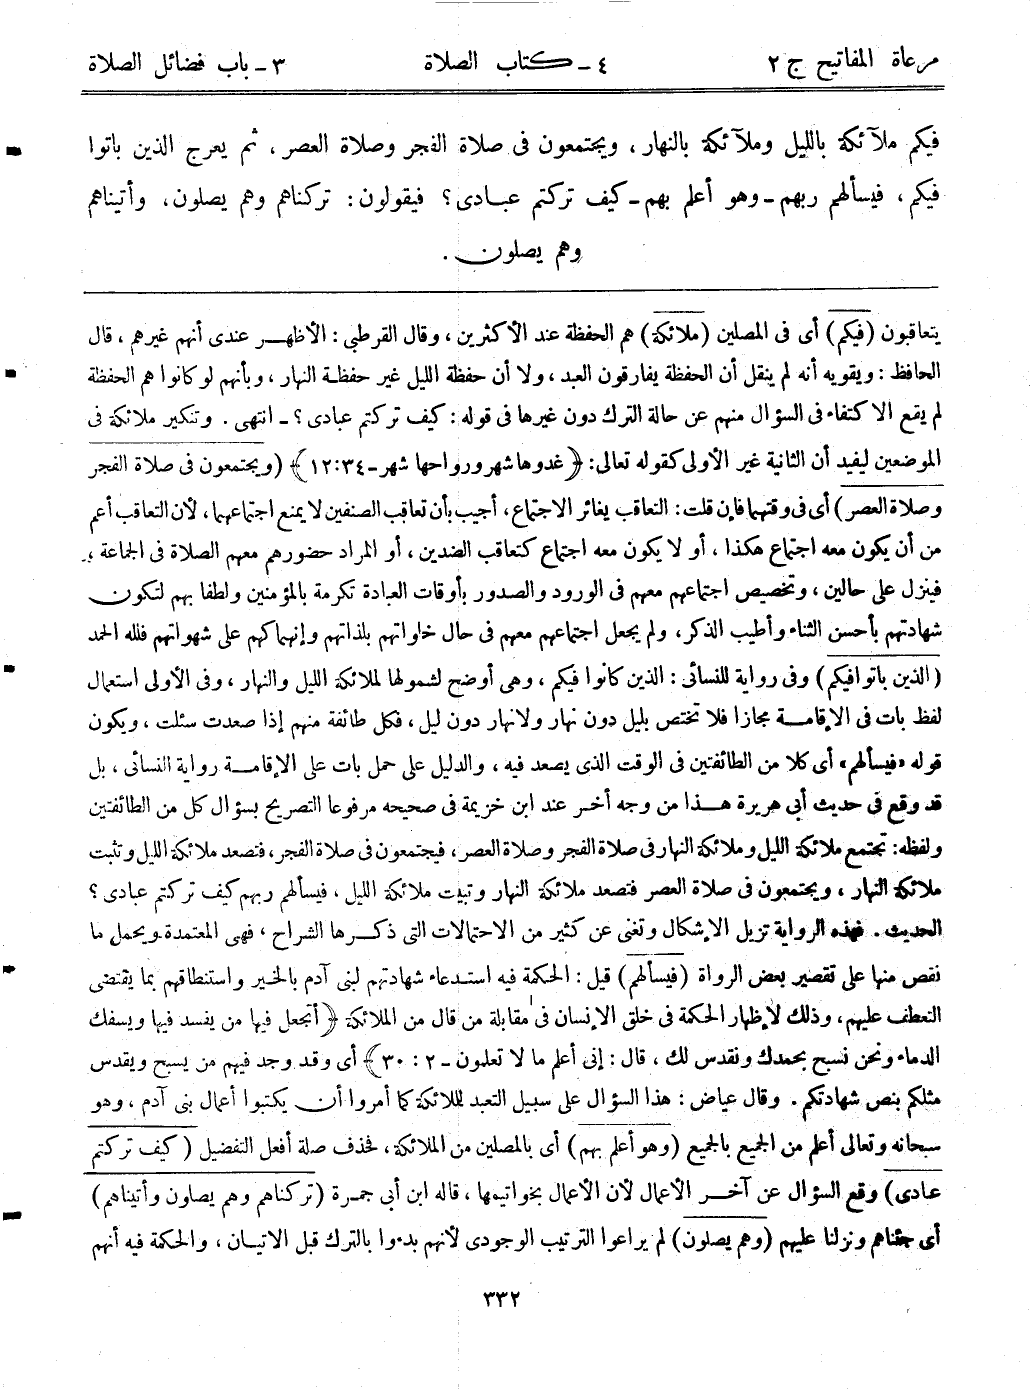 مرعاة المفاتيح ج ٢ ٤ - كتاب الصلاة ٣ - باب فضائل الصلاة
فيكم ملآئكة بالليل وملآئكة بالنهار، ويجتمعون فى صلاة الفجر وصلاة العصر، ثم يعرج الذين باتوا
فيكم، فيسألهم ربهم - وهو أعلم بهم - كيف تركتم عبادى؟ فيقولون: تركناهم وهم يصلون، وأتيناهم
وهم يصلون.
يتعاقبون (فيكم) أى فى المصلين (ملائكة) هم الحفظة عند الأكثرين، وقال القرطبى: الأظهر عندى أنهم غيرهم، قال
الحافظ: ويقويه أنه لم ينقل أن الحفظة يفارقون العبد، ولا أن حفظة الليل غير حفظة النهار، وبأنهم لو كانوا هم الحفظة
لم يقع الاكتفاء فى السؤال منهم عن حالة الترك دون غيرها فى قوله: كيف تركتم عبادى؟ - انتهى. وتنكير ملائكة فى
الموضعين ليفيد أن الثانية غير الأولى كقوله تعالى: ﴿غدوها شهر ورواحها شهر - ١٢:٣٤﴾ (ويجتمعون فى صلاة الفجر
وصلاة العصر) أى فى وقتهما فإن قلت: التعاقب يغائر الاجتماع، أجيب بأن تعاقب الصنفين لا يمنع اجتماعهما، لأن التعاقب أعم
من أن يكون معه اجتماع هكذا، أو لا يكون معه اجتماع كتعاقب الضدين، أو المراد حضورهم معهم الصلاة فى الجماعة،
فينزل على حالين، وتخصيص اجتماعهم معهم فى الورود والصدور بأوقات العبادة تكرمة بالمؤمنين ولطفا بهم لتكون
شهادتهم بأحسن الثناء وأطيب الذكر، ولم يجعل اجتماعهم معهم فى حال خلواتهم بلذاتهم وإنهماكهم على شهواتهم فلله الحمد
(الذين باتوا فيكم) وفى رواية للنسائى: الذين كانوا فيكم، وهى أوضح لشمولها لملائكة الليل والنهار، وفى الأولى استعمال
لفظ بات فى الإقامة مجازا فلا تختص بليل دون نهار ولا نهار دون ليل، فكل طائفة منهم إذا صعدت سئلت، ويكون
قوله «فيسألهم» أى كلا من الطائفتين فى الوقت الذى يصعد فيه، والدليل على حمل بات على الإقامة رواية النسائى، بل
قد وقع فى حديث أبى هريرة هذا من وجه أخر عند ابن خزيمة فى صحيحه مرفوعا التصريح بسؤال كل من الطائفتين
ولفظه: تجتمع ملائكة الليل وملائكة النهار فى صلاة الفجر وصلاة العصر، فيجتمعون فى صلاة الفجر، فتصعد ملائكة الليل وتثبت
ملائكة النهار، ويجتمعون فى صلاة العصر فتصعد ملائكة النهار وتبيت ملائكة الليل، فيسألهم ربهم كيف تركتم عبادى؟
الحديث. فهذه الرواية تزيل الإشكال وتغنى عن كثير من الاحتمالات التى ذكرها الشراح، فهى المعتمدة ويحمل ما
نقص منها على تقصير بعض الرواة (فيسألهم) قيل: الحكمة فيه استدعاء شهادتهم لبنى آدم بالخير واستنطاقهم بما يقتضى
التعطف عليهم، وذلك لإظهار الحكمة فى خلق الإنسان فى مقابلة من قال من الملائكة ﴿أتجعل فيها من يفسد فيها ويسفك
الدماء ونحن نسبح بحمدك ونقدس لك، قال: إنى أعلم ما لا تعلمون - ٢ : ٣٠﴾ أى وقد وجد فيهم من يسبح ويقدس
مثلكم بنص شهادتكم. وقال عياض: هذا السؤال على سبيل التعبد للملائكة كما أمروا أن يكتبوا أعمال بنى آدم، وهو
سبحانه وتعالى أعلم من الجميع بالجميع (وهو أعلم بهم) أى بالمصلين من الملائكة، فحذف صلة أفعل التفضيل (كيف تركتم
عبادى) وقع السؤال عن آخر الأعمال لأن الأعمال بخواتيمها، قاله ابن أبى جمرة (تركناهم وهم يصلون وأتيناهم)
أى جئناهم ونزلنا عليهم (وهم يصلون) لم يراعوا الترتيب الوجودى لأنهم بدءوا بالترك قبل الاتيان، والحكمة فيه أنهم
٣٣٢